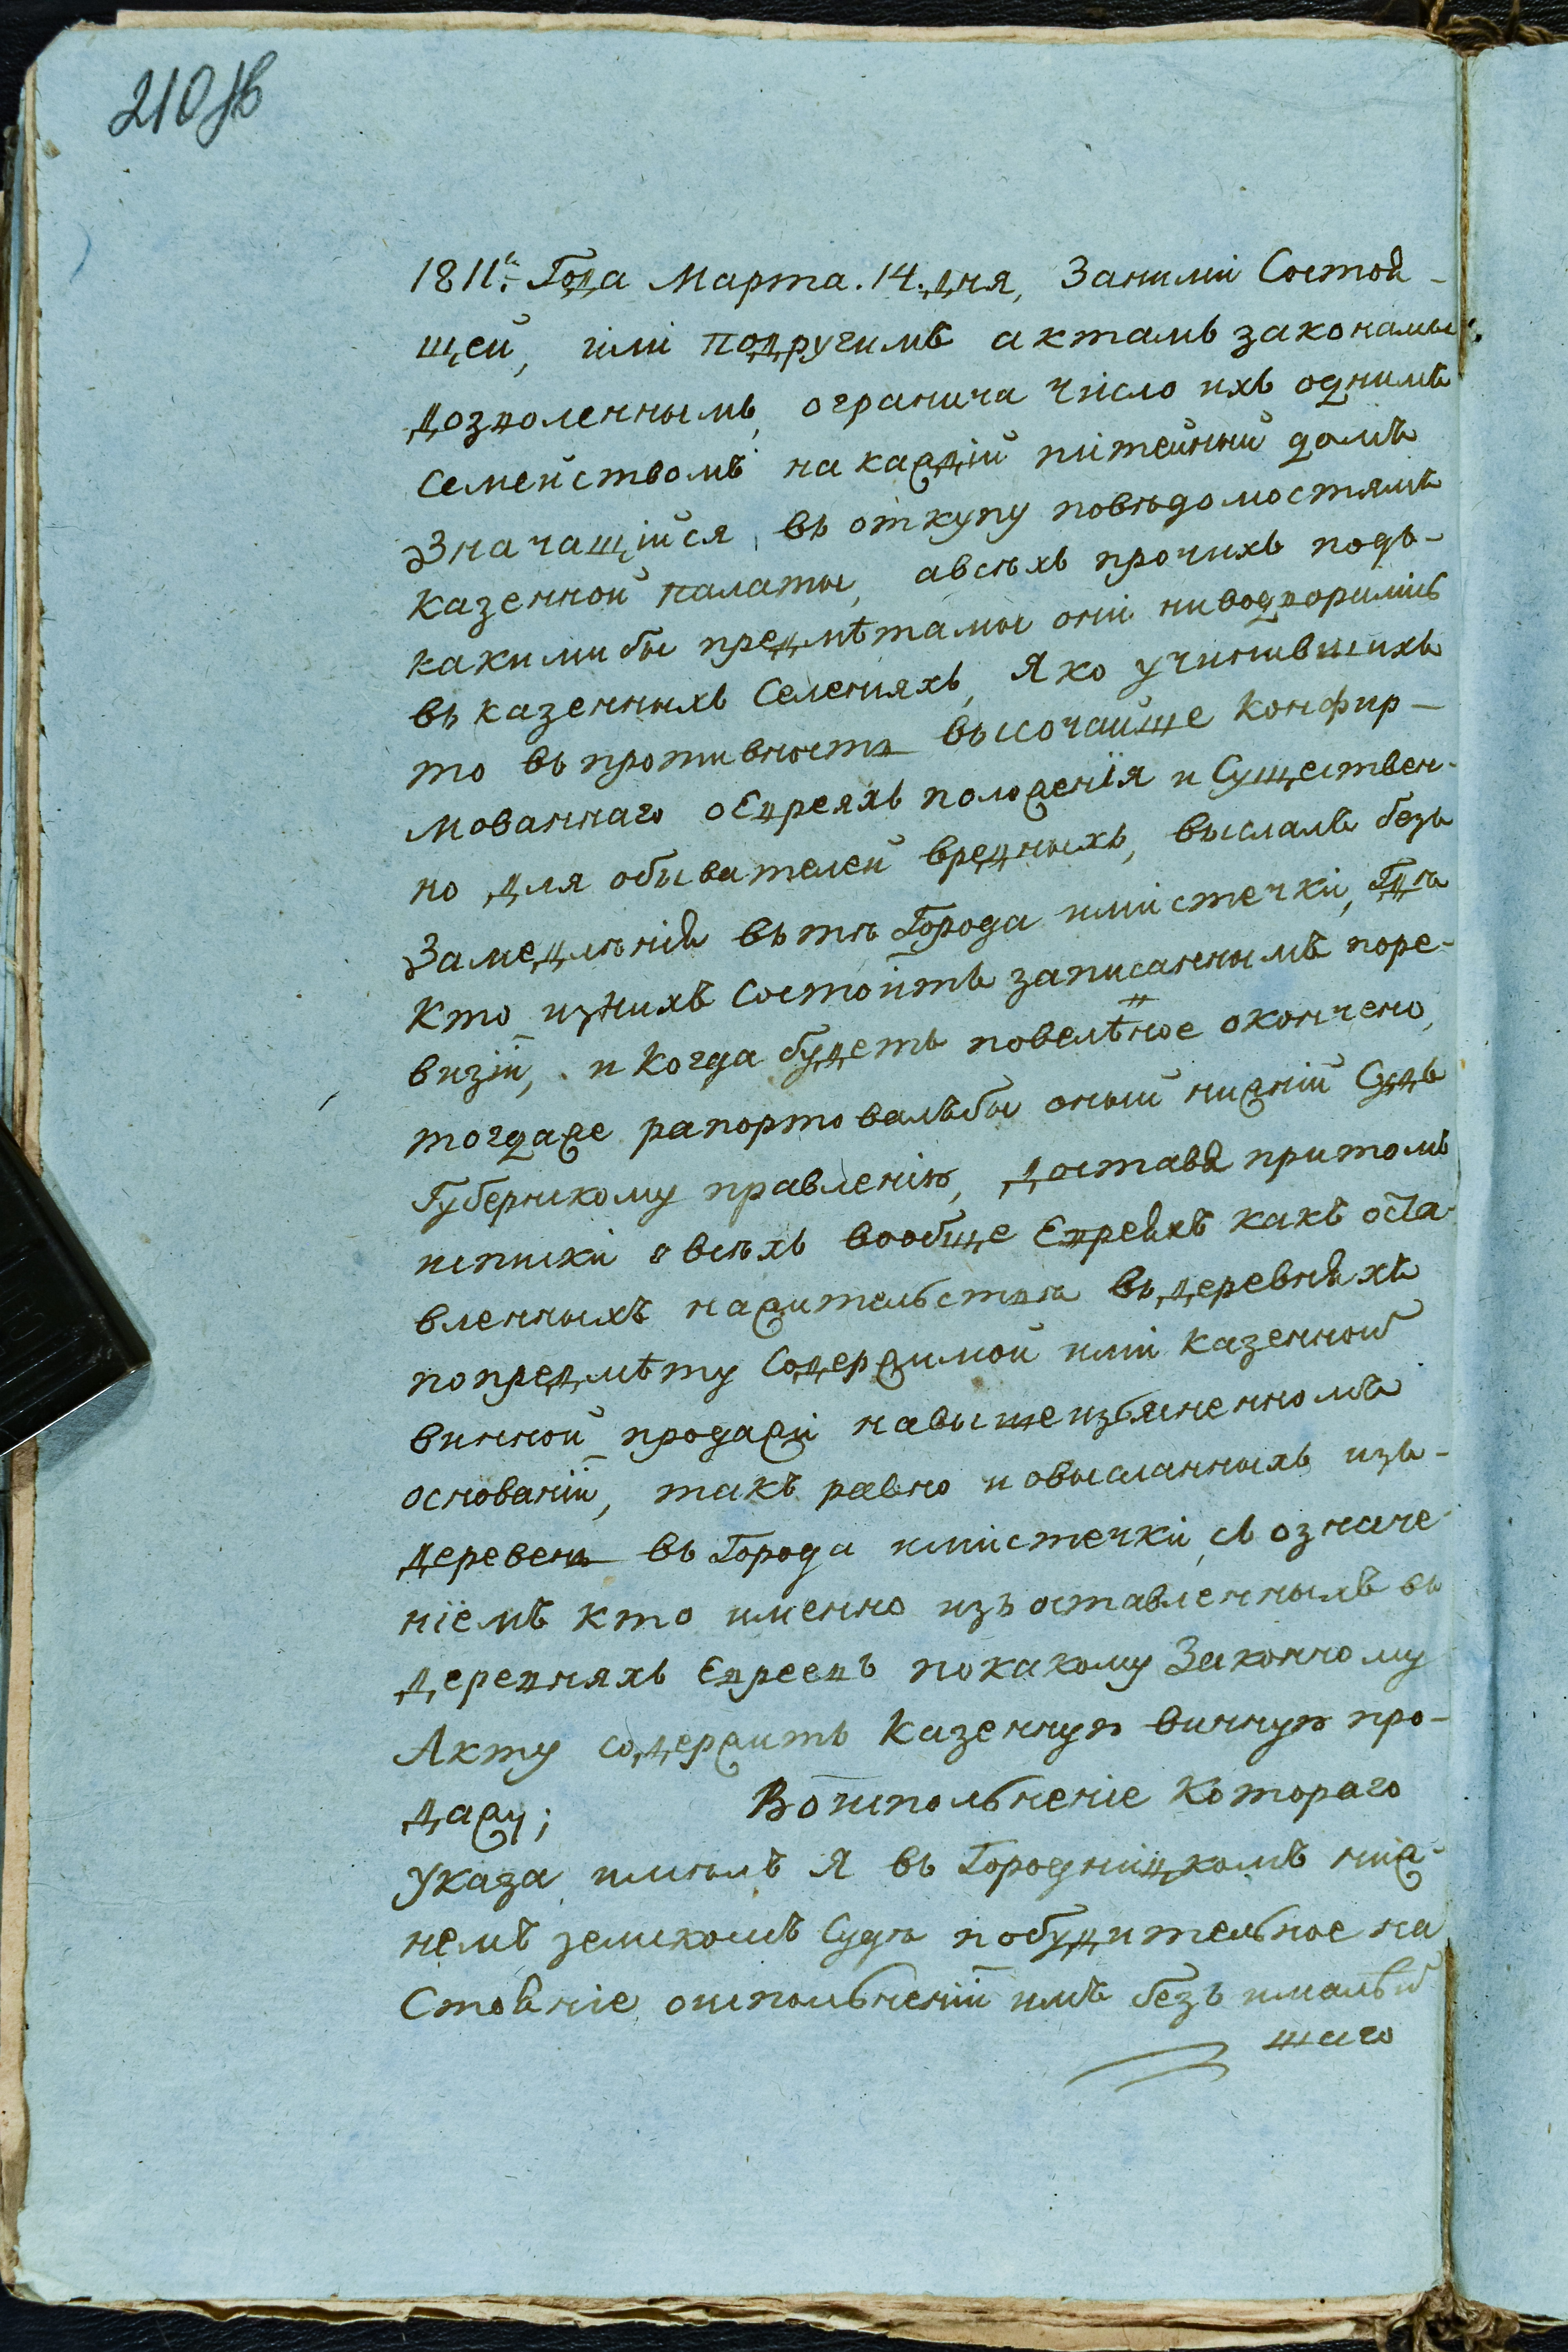 210 зв
1811: Года Марта. 14. дня, Заними Состоя-
щей, или подручимъ актамъ законамы
дозволеннымъ, огранича число ихъ однимъ
Семействомъ на каждій питейный домъ
Значащійся въ откупу повѣдомостямъ
казенной палаты, авсѣхъ прочихъ подъ-
какимибы предмѣтамы они ниводворились
въ казенныхъ Селенияхъ, Яко учинившихъ
то въ противность высочайше Конфир-
мованнаго оЕвреяхъ положенія и Существен-
но для обывателей вредныхъ, выслалъ безъ
Замедлѣнія вътѣ Города имистечки, Гдѣ
Кто изнихъ Состоитъ записаннымъ поре-
визіи, и Когда будетъ повелѣное окончено,
тогдаже рапортовалъбы оный нижній Судъ
Губернскому правленію, доставя притомъ
списки овсѣхъ вообще Евреяхъ какъ оста-
вленныхъ нажительствѣ въ деревняхъ
попредмѣту Содержимой ими Казенной
винной продажи навышеизъясненномъ
основаніи, такъ равно и овысланныхъ изъ-
деревень въ Города имистечки, съ означе-
ніемъ кто именно изъ оставленныхъ въ
деревняхъ Евреевъ покакому Законному
Акту содержитъ Казенную винную про-
дажу; Воисполненіе Котораго
Указа имѣлъ Я въ Городницкомъ ниж-
немъ земскомъ Судѣ побудительное на
Стояніе оисполненіи имъ безъ ималѣй
шаго